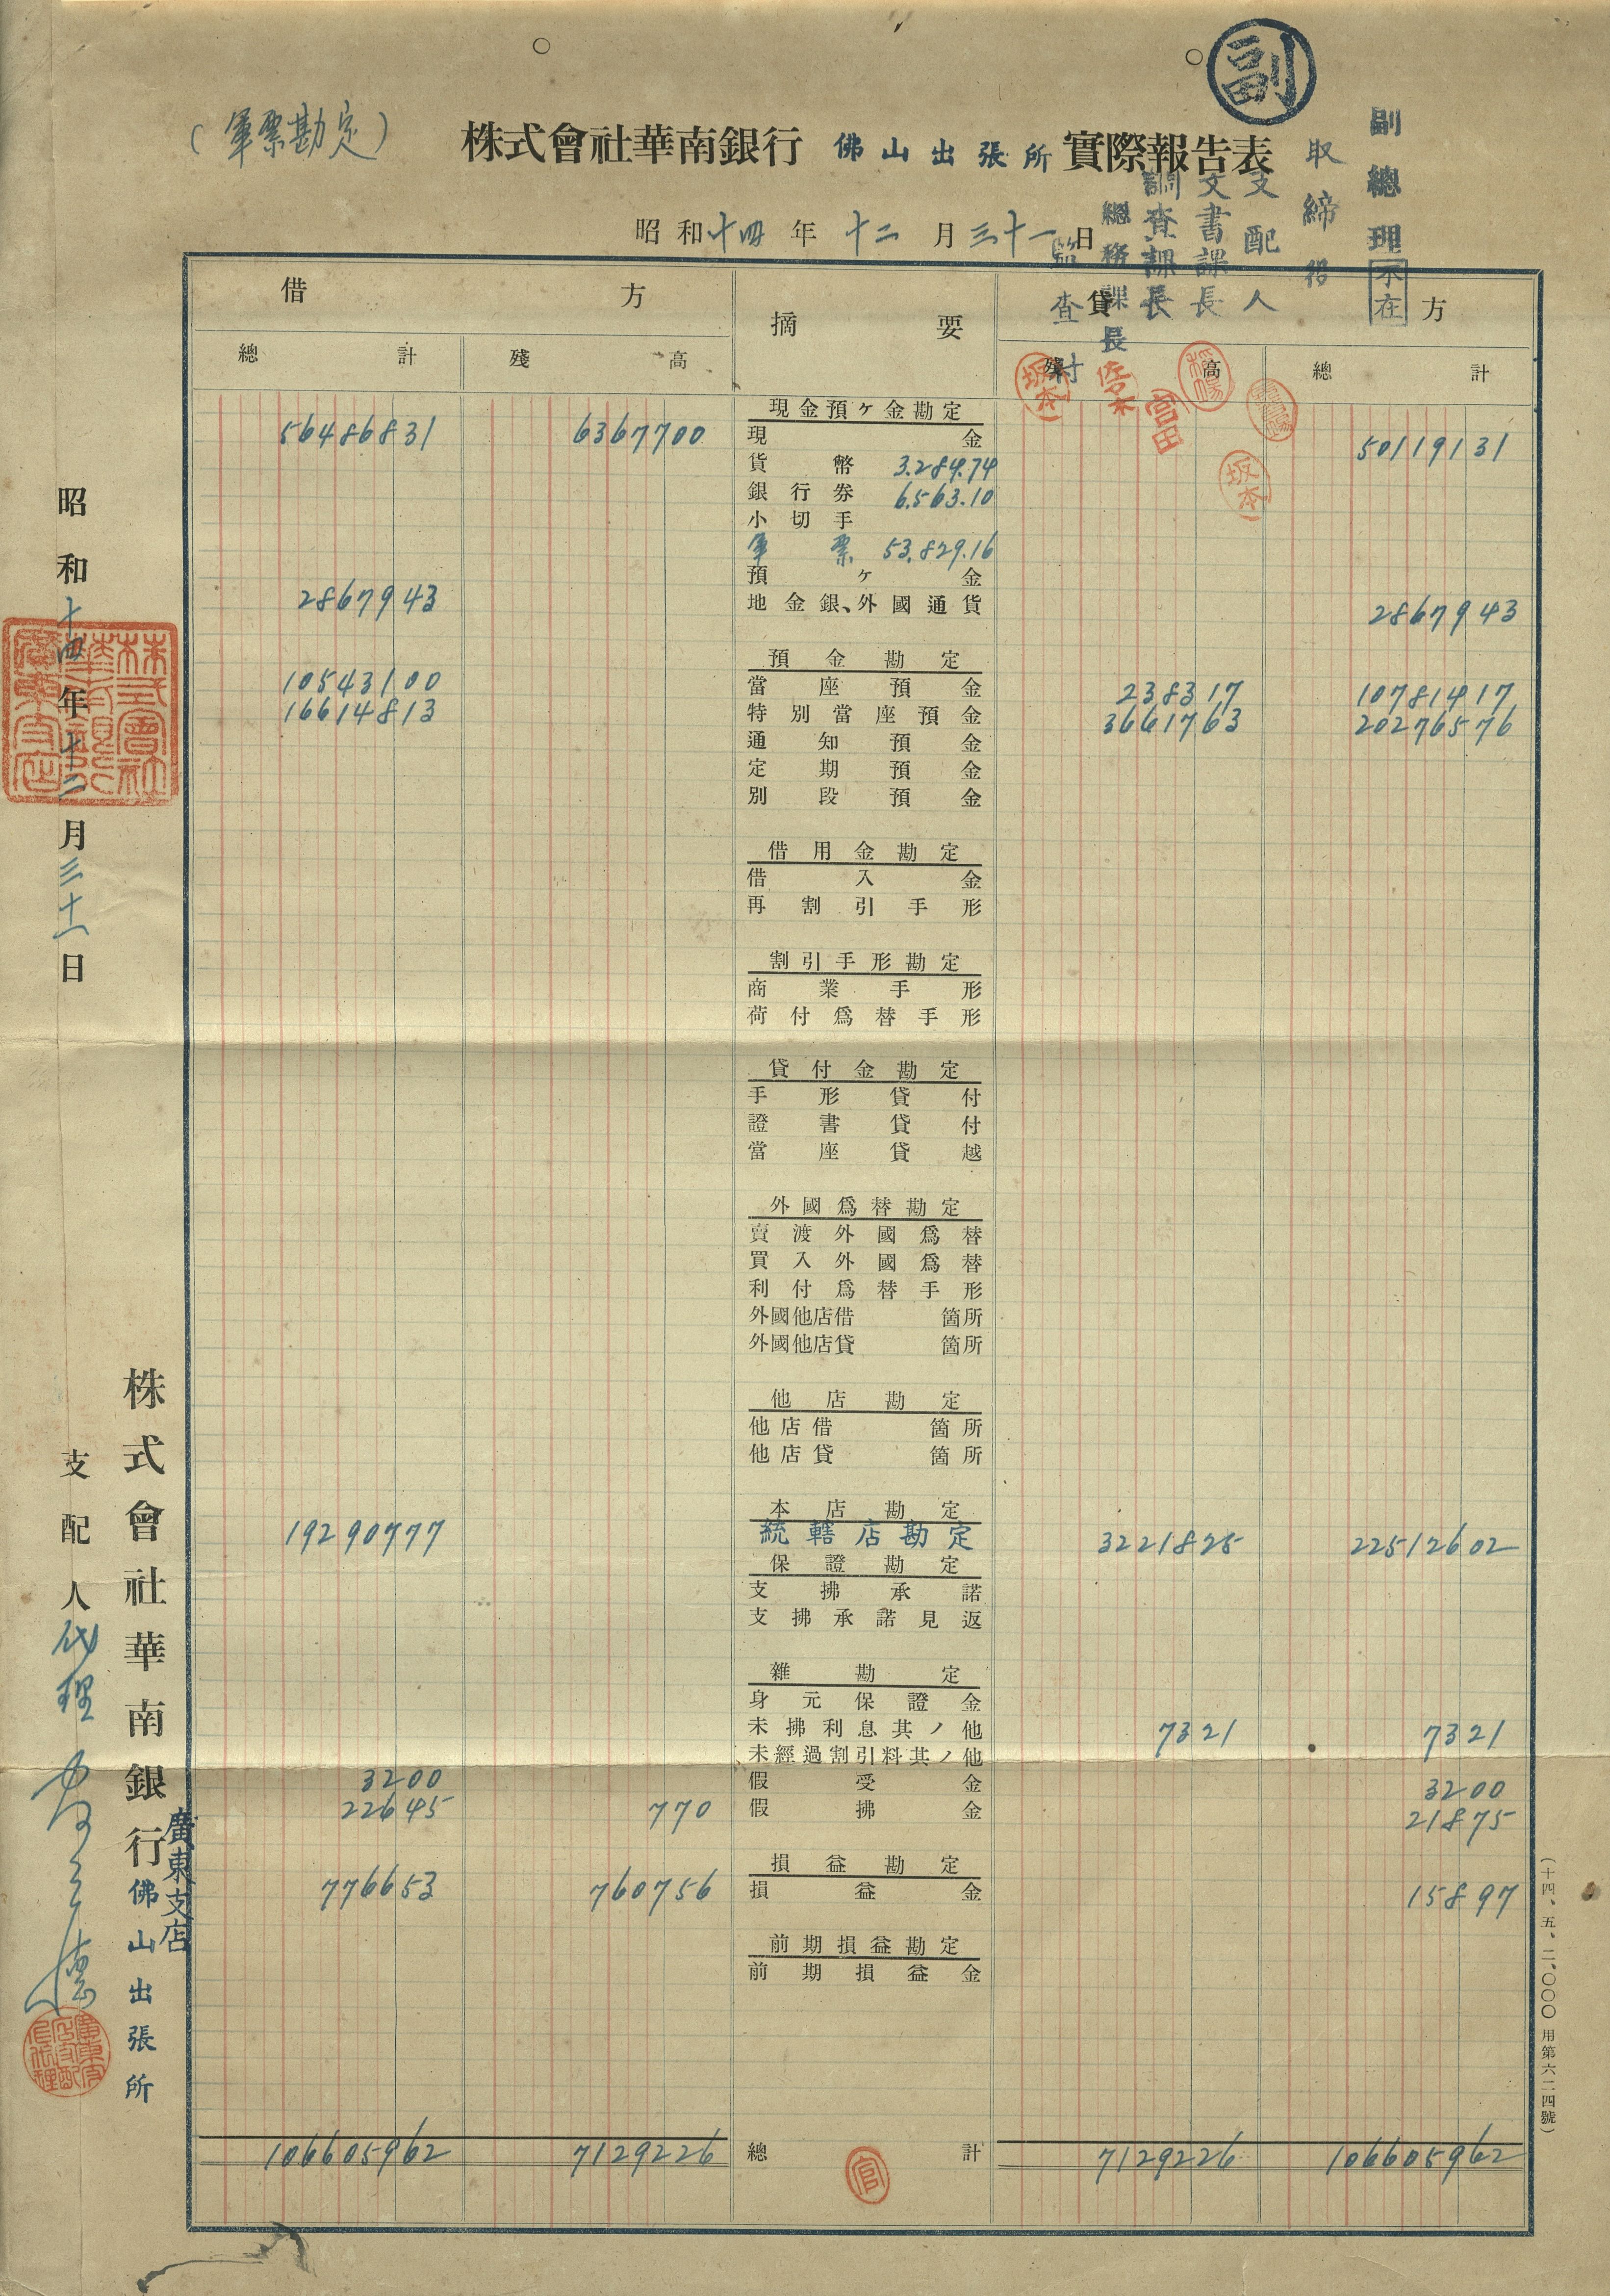 副
(軍票勘定)
株式會社華南銀行 佛山出張所 實際報告表
昭和十四年十二月三十一日
副總理 不在
取締役
支配人
文書課長
調査課長
總務課長
監査付
借方 摘要 貸方
總計 殘高 殘高 總計
現金預ヶ金勘定
56486831 6367700 現金 50119131
貨幣 3.284.74
銀行券 6.563.10
小切手
軍票 53.829.16
預ヶ金
2867943 地金銀、外國通貨 2867943
預金勘定
10543100 當座預金 238317 10781417
16614813 特別當座預金 3661763 20276576
通知預金
定期預金
別段預金
借用金勘定
借入金
再割引手形
割引手形勘定
商業手形
荷付爲替手形
貸付金勘定
手形貸付
證書貸付
當座貸越
外國爲替勘定
賣渡外國爲替
買入外國爲替
利付爲替手形
外國他店借 箇所
外國他店貸 箇所
他店勘定
他店借 箇所
他店貸 箇所
本店勘定
19290777 統轄店勘定 3221825 22512602
保證勘定
支拂承諾
支拂承諾見返
雜勘定
身元保證金
未拂利息其ノ他 7321 7321
未經過割引料其ノ他
3200 假受金 3200
22645 770 假拂金 21875
損益勘定
776653 760756 損益金 15897
前期損益勘定
前期損益金
106605962 7129226 總計 7129226 106605962
昭和十四年十二月三十一日
株式會社華南銀行 廣東支店 佛山出張所
支配人代理
(十四、五、二、〇〇〇 用第六二四號)
坂本
佐木
宮田
坂本
官
株式會社華南銀行廣東支店
廣東支店支配人代理